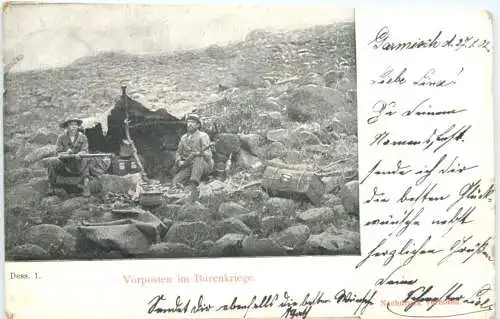 Garmisch d. 27.6.02
Liebe Lina!
Zu Deinem
Namensfeste
sende ich Dir
die besten Glück-
wünsche nebst
herzlichen Grüßen
Deine
Schwester
Dess. 1.
Vorposten im Burenkriege.
Nachdruck verboten.
Sendet dir ebenfalls die besten Wünsche